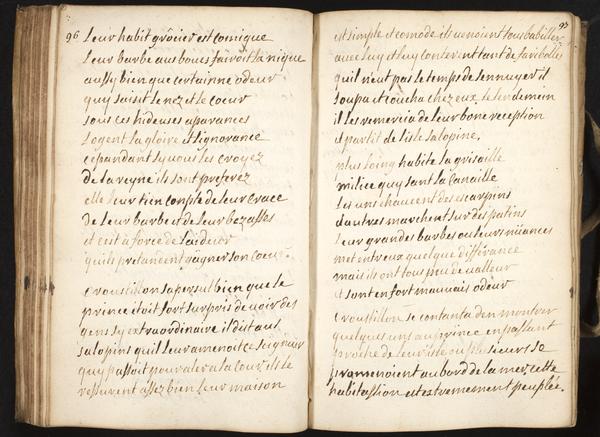 96
Leur habit grôcier est comique
Leur barbe aux boucs fairoit la nique
aussy bien que certainne odeur
quy saisit le nez et le coeur
sous ces hideuses aparances
Logent la gloire et l'ignorance
cependant sy vous les croyez
de la reyne ils sont preferez
elle leur tien conpte de leur crace
de leur barbe et de leur bezasses
et c'est à force de laideur
qu'ils pretandent gagner son coeur
Croustillon sapersut bien que le
prince etoit fort surpris de voir des
gens sy extraordinaire il dit aux
salopins qu'il leur amenoit ce seignieur
quy passoit pour aler a la cour, ils le
ressurent assez bien leur maison
97
est simple et comode ils venoient tous babiller
avec luy et luy conterent tant de fariboles
quil n'eut pas le temps de sennuyer il
soupa et coucha chez eux le lendemein
il les remercia de leur bone reception
et partit de lisle salopine,
plus loing habite la grisaille
milice quy sant la canaille
Les uns chaucent des escarpins
dautres marchent sur des patins
Leur grandes barbes ou leurs nüances
met entreux quelque différance
mais ils ont tous peu de valleur
et sont en fort mauvais odeur
Croustillon se contanta den montrer
quelques uns au prince en passant
proche de leur isle ou plusieurs se
promenoient au bord de la mer, cette
habitassion est extremement peuplée.